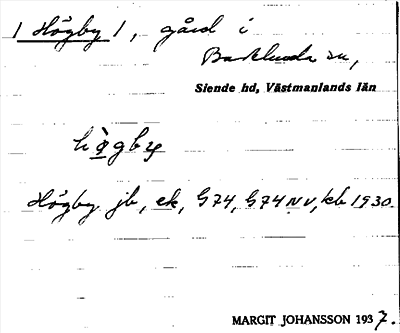 [Högby], gård i
Barkluda sn,
Siende hd, Västmanlands län
hø̀gby
Högby jb, ek, G74, G74NV, kb 1930.
MARGIT JOHANSSON 1937.